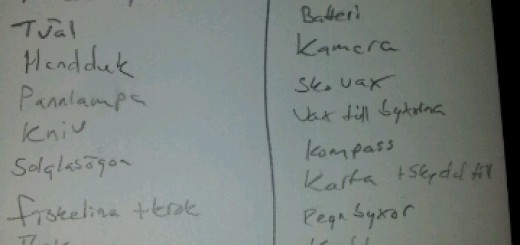 Tvål
Handduk
Pannlampa
Kniv
Solglasögon
fiskelina + krok
Batteri
Kamera
Skovax
Vax till byxorna
Kompass
Karta +
Regnbyxor